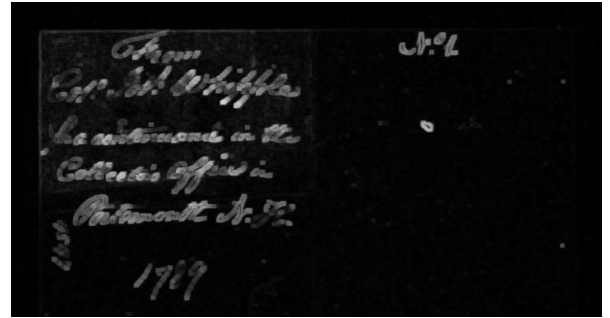 From
Col. Jos. Whipple
for continuance in the
Collector's office in
Portsmouth N. H.
1789
No. 1